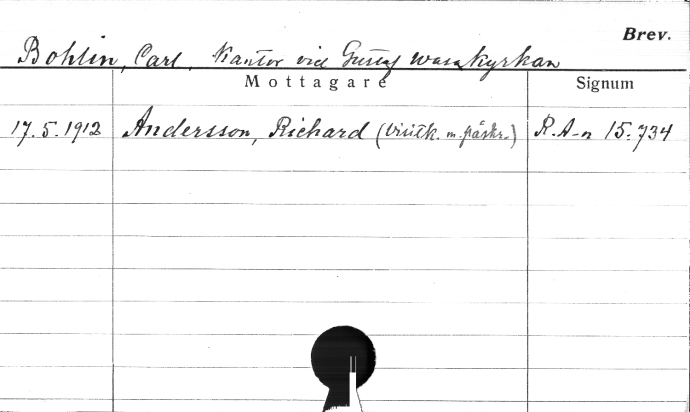 Brev.
Bohlin, Carl, Kantor vid Gustaf Wasakyrkan
Mottagare Signum
17.5.1912 Andersson, Richard (Visitk. m. påskr.) R.A-n 15.734